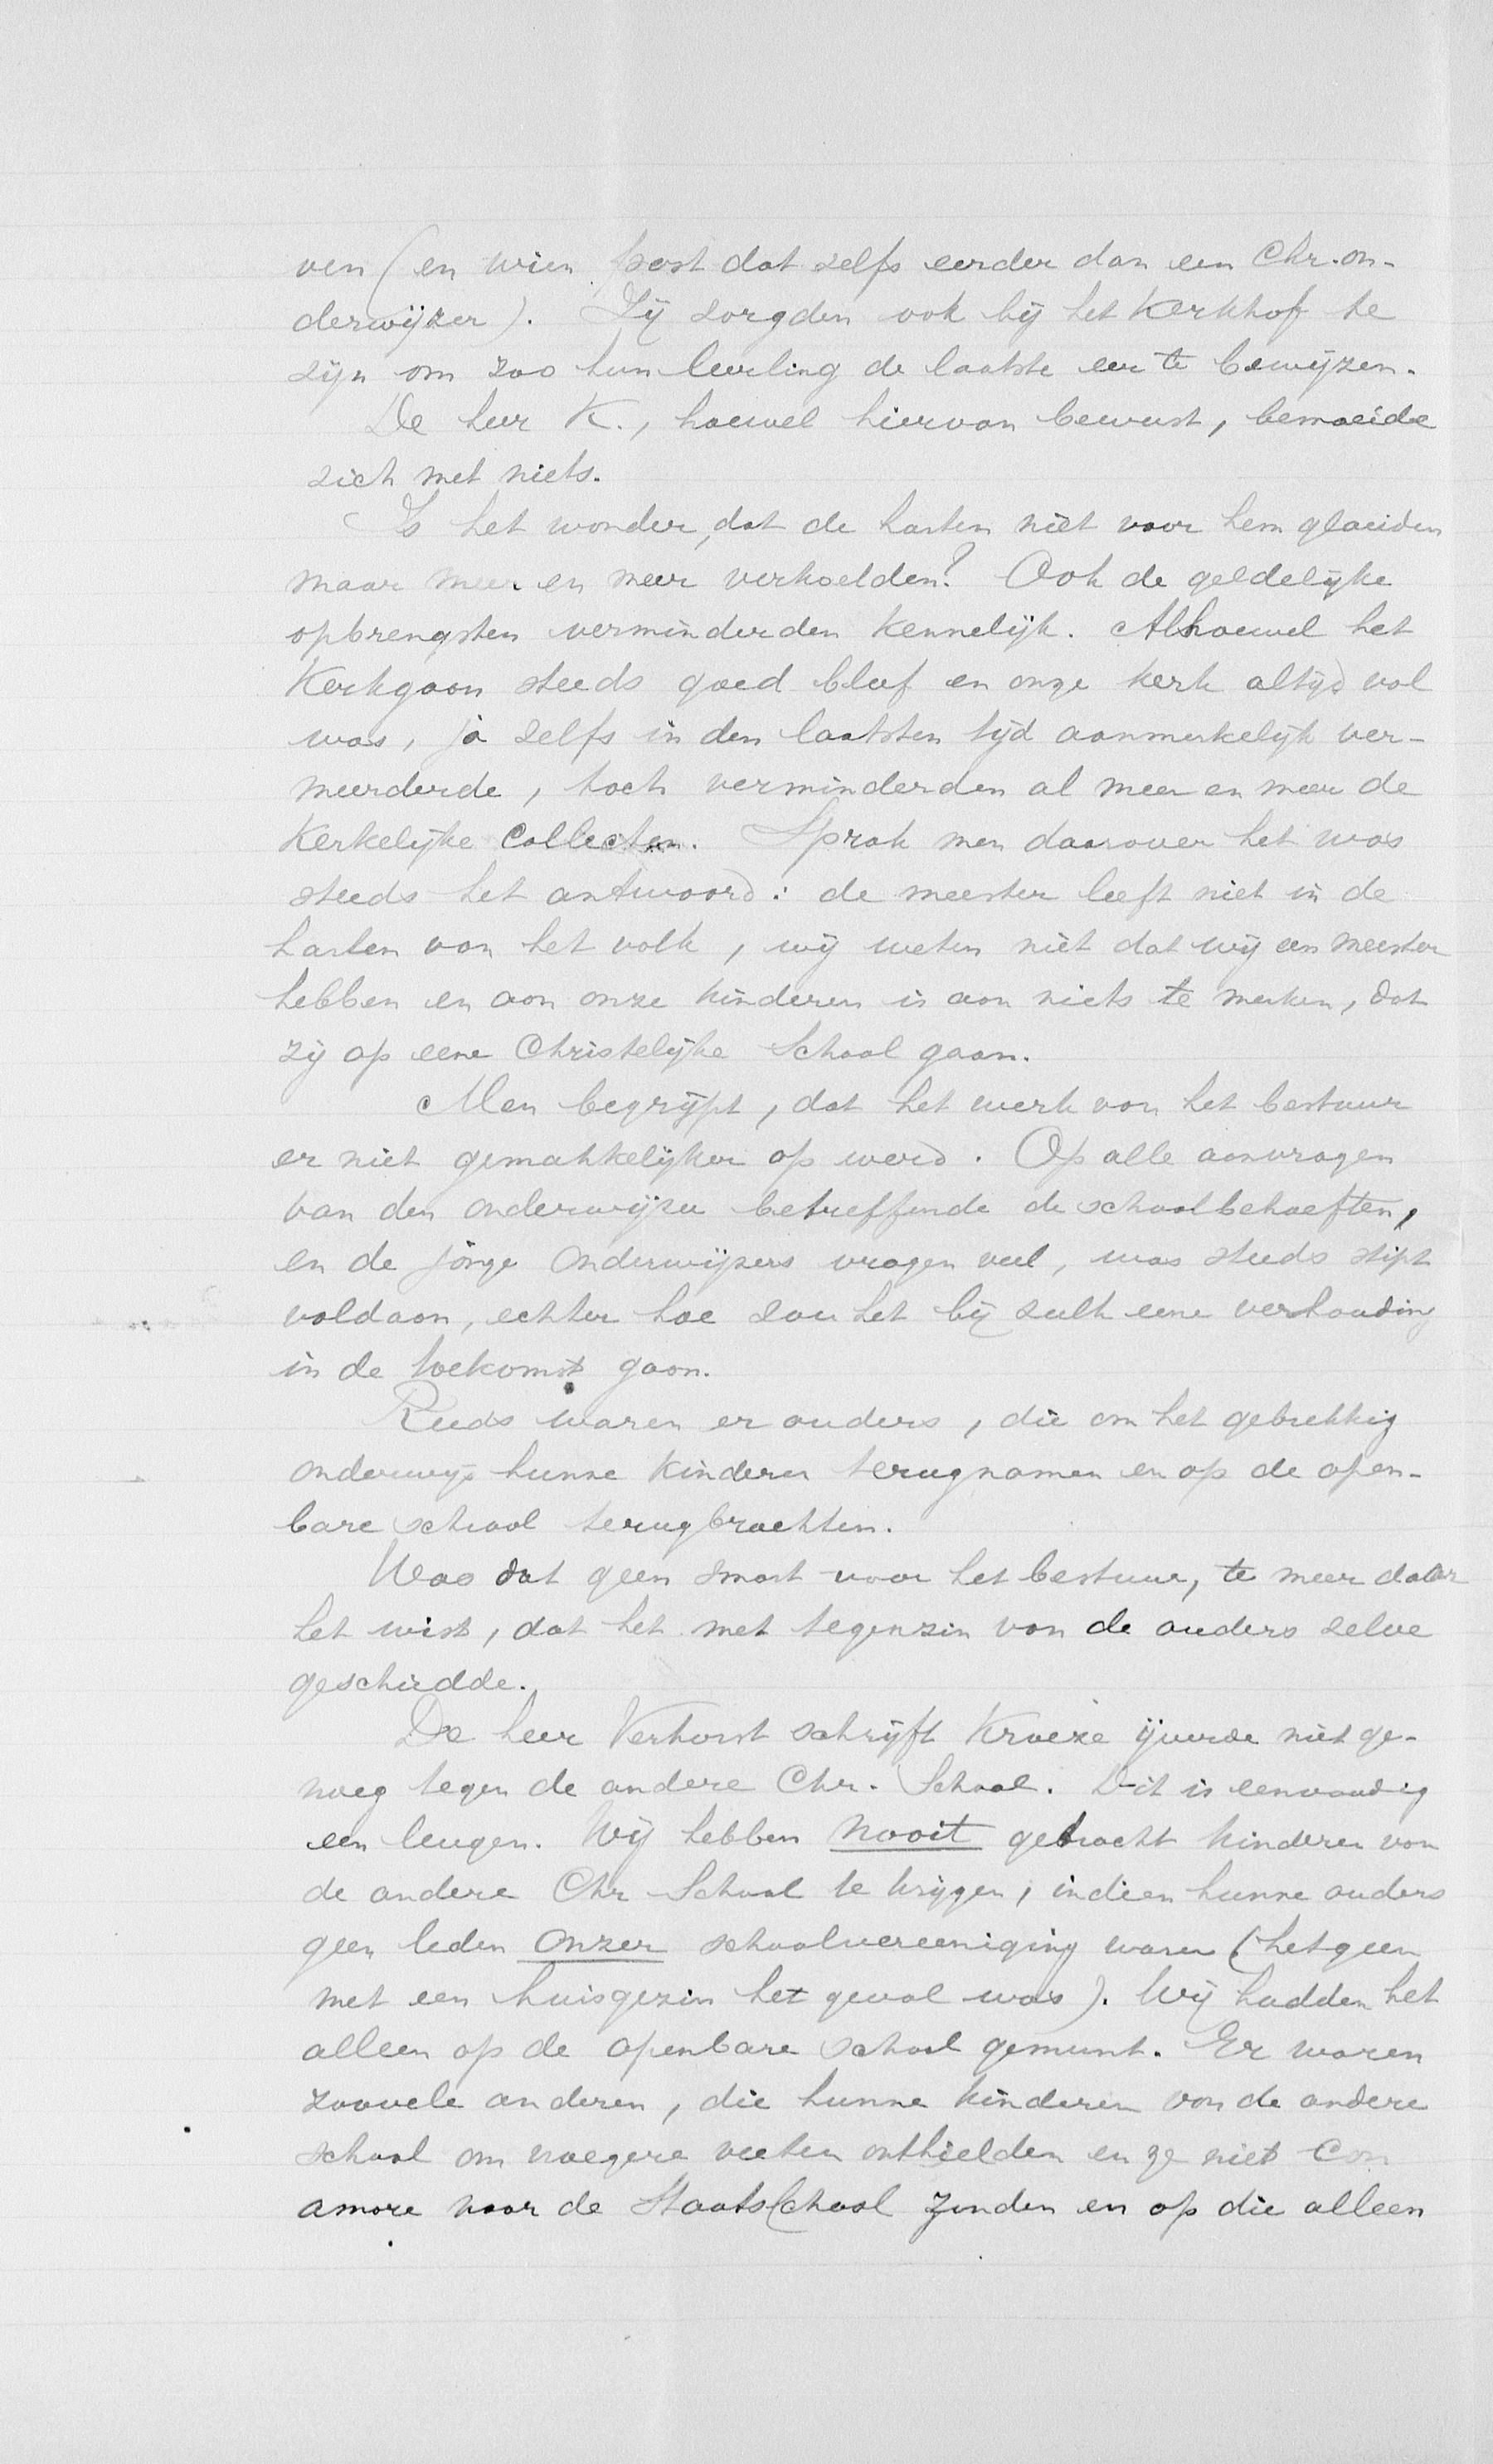 ven (en wien past dat zelfs eerder dan een Chr. on-
derwijzer). Zij zorgden ook bij het Kerkhof te
zijn om zoo hun leerling de laatste eer te bewijzen.
De heer K., hoewel hiervan bewust, bemoeide
zich met niets.
Is het wonder, dat de harten niet voor hem gloeiden
maar meer en meer verkoelden? Ook de geldelijke
opbrengsten verminderden kennelijk. Alhoewel het
Kerkgaan steeds goed bleef en onze kerk altijd vol
was, ja zelfs in den laatsten tijd aanmerkelijk ver-
meerderde, toch verminderden al meer en meer de
Kerkelijke Collecten. Sprak men daarover het was
steeds het antwoord: de meester leeft niet in de
harten van het volk, wij weten niet dat wij een meester
hebben en aan onze kinderen is aan niets te merken, dat
zij op eene Christelijke School gaan.
Men begrijpt, dat het werk van het bestuur
er niet gemakkelijker op werd. Op alle aanvragen
van den onderwijzer betreffende de schoolbehoeften,
en de jonge Onderwijzers vragen veel, was steeds stipt
voldaan, echter hoe zou het bij zulk eene verhouding
in de toekomst gaan.
Reeds waren er ouders, die om het gebrekkig
onderwijs hunne kinderen terugnamen en op de open-
bare school terugbrachten.
Was dat geen smart voor het bestuur, te meer daar
het wist, dat het met tegenzin van de ouders zelve
geschiedde.
De heer Verhorst schrijft Kroeze ijverde niet ge-
noeg tegen de andere Chr. School. Dit is eenvoudig
een leugen. Wij hebben nooit getracht kinderen van
de andere Chr School te krijgen, indien hunne ouders
geen leden onzer schoolvereeniging waren (hetgeen
met een huisgezin het geval was). Wij hadden het
alleen op de openbare school gemunt. Er waren
zoovele anderen, die hunne kinderen van de andere
school om vroegere veeten onthielden en ze niet con
amore naar de StaatsSchool zonden en op die alleen